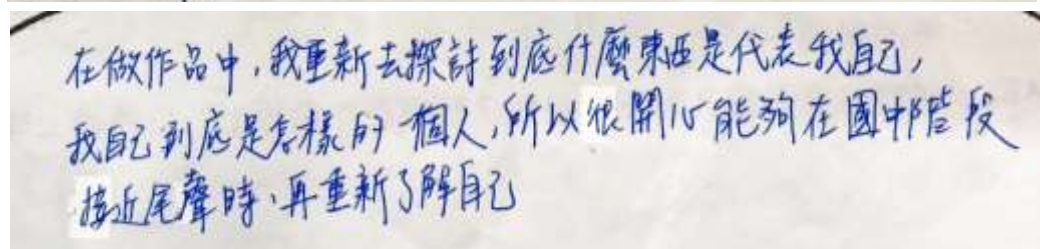 在做作品中,我重新去探討到底什麼東西是代表我自己,
我自己到底是怎樣的一個人,所以很開心能夠在國中階段
接近尾聲時,再重新了解自己